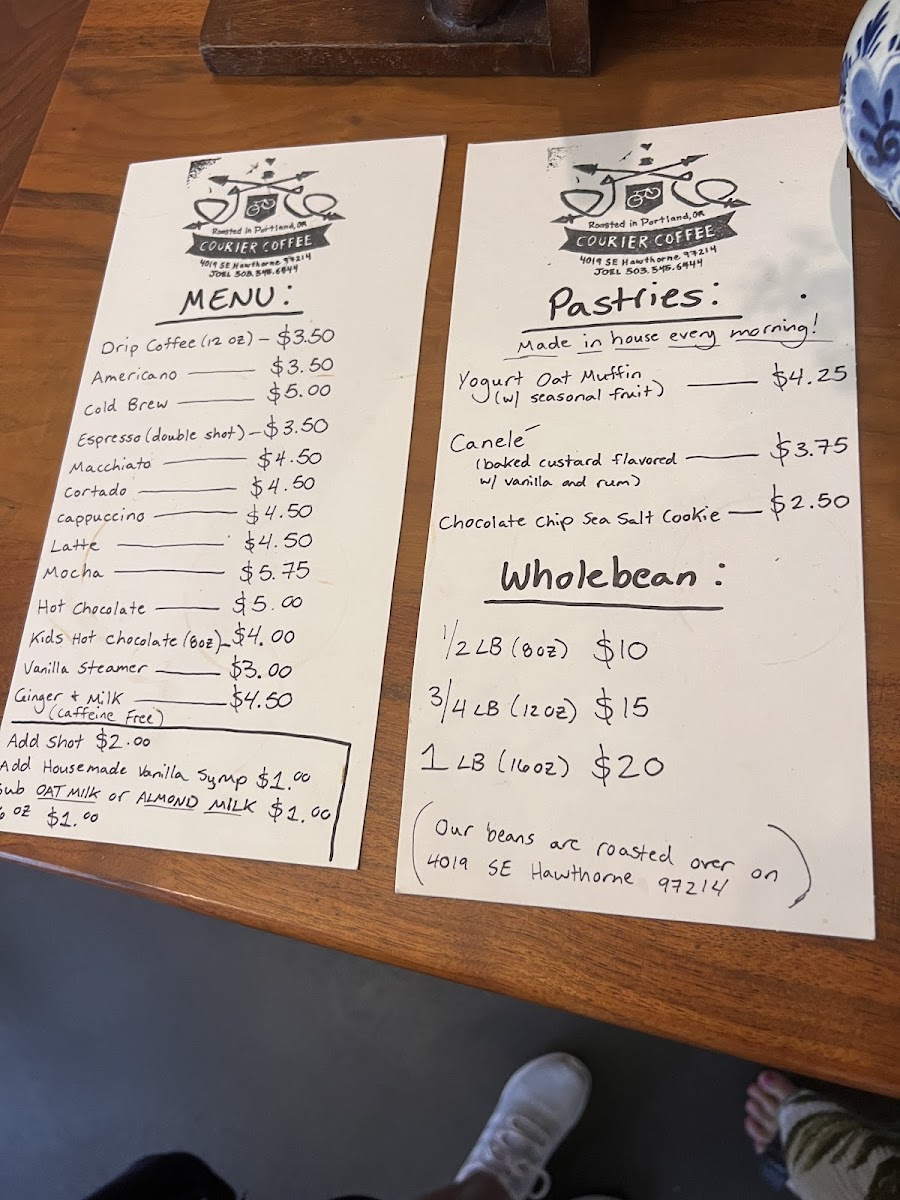 Roasted in Portland, OR
COURIER COFFEE
4019 SE Hawthorne 97214
JOEL 503.545.6444
MENU:
Drip Coffee (12 oz) - $3.50
Americano $3.50
Cold Brew $5.00
Espresso (double shot) - $3.50
Macchiato $4.50
Cortado $4.50
Cappuccino $4.50
Latte $4.50
Mocha $5.75
Hot Chocolate $5.00
Kids Hot Chocolate (8oz) - $4.00
Vanilla Steamer $3.00
Ginger + Milk $4.50
(Caffeine Free)
Add Shot $2.00
Add Housemade Vanilla Syrup $1.00
OAT MILK or ALMOND MILK $1.00
oz $1.00
Roasted in Portland, OR
COURIER COFFEE
4019 SE Hawthorne 97214
JOEL 503.545.6444
Pastries:
Made in house every morning!
Yogurt Oat Muffin $4.25
(w/ seasonal fruit)
Canelé $3.75
(baked custard flavored
w/ vanilla and rum)
Chocolate Chip Sea Salt Cookie - $2.50
Wholebean:
1/2 LB (8oz) $10
3/4 LB (12oz) $15
1 LB (16oz) $20
(Our beans are roasted over on
4019 SE Hawthorne 97214)